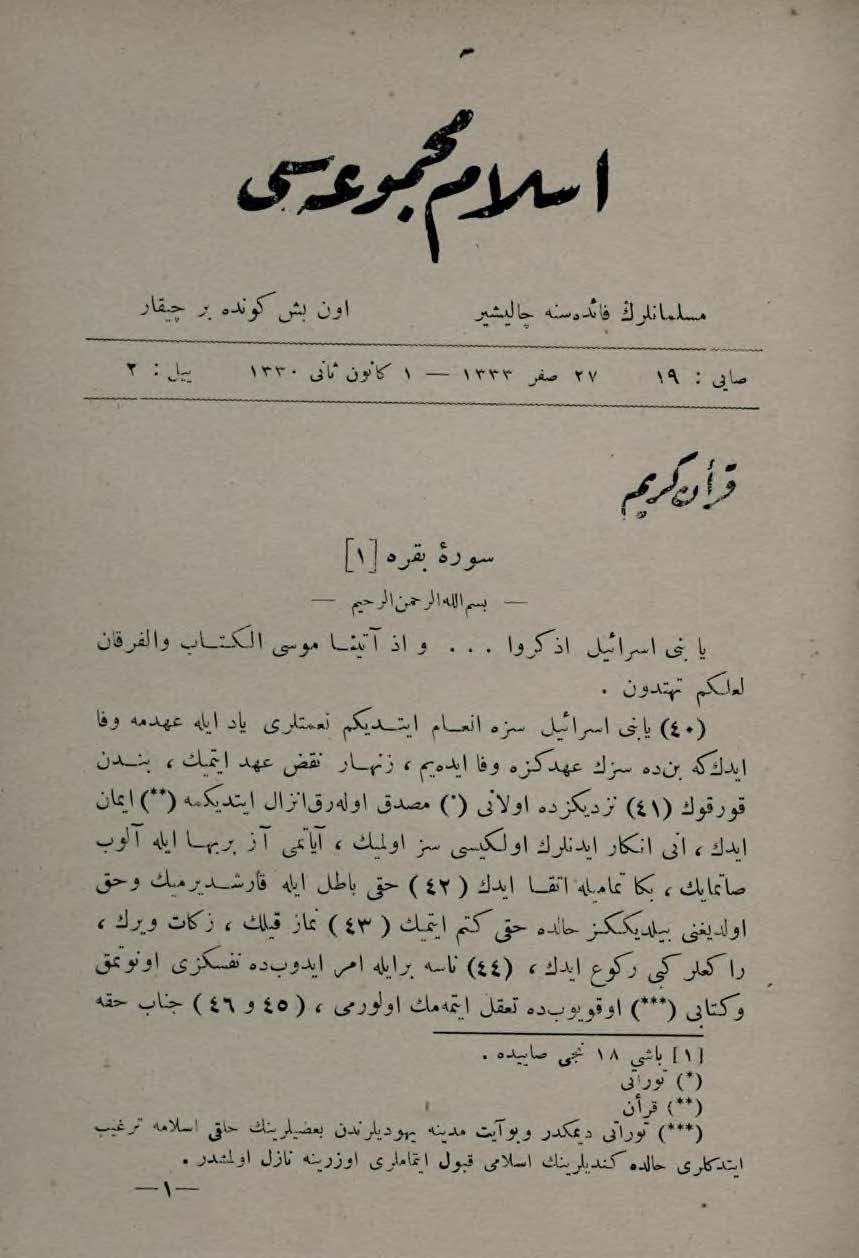 اسلام مجموعه سى
مسلمانلرك فائده‌سنه چاليشير
اون بش كونده بر چيقار
صايى : ١٩ ٢٧ صفر ١٣٣٣ — ١ كانون ثانى ١٣٣٠ ييل : ٢
قرأن كريم
سورۀ بقره [١]
— بسم الله الرحمن الرحيم —
يا بنى اسرائيل اذكروا . . . و اذ آتينا موسى الكتاب والفرقان
لعلكم تهتدون .
(٤٠) يابنى اسرائيل سزه انعام ايتديكم نعمتلرى ياد ايله عهدمه وفا
ايدك‌كه بن‌ده سزك عهدكزه وفا ايده‌يم ، زنهار نقض عهد ايتميك ، بندن
قورقوك (٤١) نزديكزده اولانى (*) مصدق اوله‌رق‌انزال ايتديكمه (**) ايمان
ايدك ، انى انكار ايدنلرك اولكيسى سز اولميك ، آياتمى آز بربها ايله آلوب
صاتمايك ، بكا تماميله اتقا ايدك (٤٢) حقى باطل ايله قارشديرميك وحق
اولديغنى بيلديككز حالده حقى كتم ايتميك (٤٣) نماز قيلك ، زكات ويرك ،
را كعلر كبى ركوع ايدك ، (٤٤) ناسه برايله امر ايدوب‌ده نفسكزى اونوتمق
وكتابى (***) اوقويوب‌ده تعقل ايتمه‌مك اولورمى ، (٤٥ و ٤٦) جناب حقه
[١] باشى ١٨ نجى صاييده .
(*) توراتى
(**) قرأن
(***) توراتى ديمكدر وبوآيت مدينه يهوديلرندن بعضيلرينك خلقى اسلامه ترغيب
ايتدكلرى حالده كنديلرينك اسلامى قبول ايتماملرى اوزرينه نازل اولمشدر .
—١—